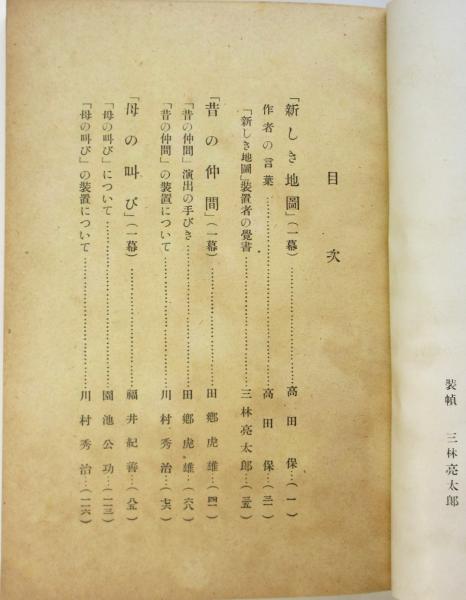 装幀　三林亮太郎
目次
「新しき地圖」（一幕）……高田保…（一）
作者の言葉……高田保…（三一）
「新しき地圖」装置者の覺書……三林亮太郎…（三五）
「昔の仲間」（一幕）……田郷虎雄…（四一）
「昔の仲間」演出の手びき……田郷虎雄…（六八）
「昔の仲間」の装置について……川村秀治…（七六）
「母の叫び」（一幕）……福井紀善…（八五）
「母の叫び」について……園池公功…（一二三）
「母の叫び」の装置について……川村秀治…（一二六）